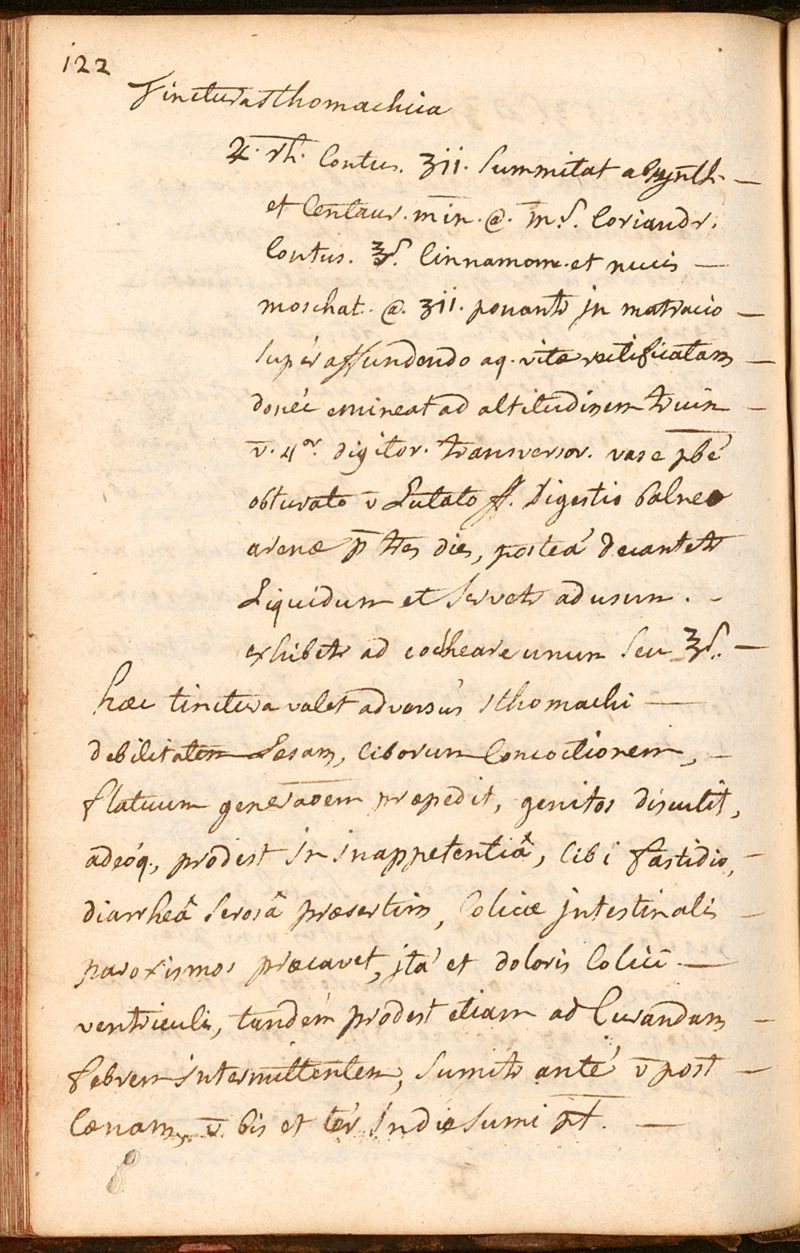 122
Tinctura sthomachica
♃. rh. Contus. ʒii. Summitat absynth. —
et Centaur. min. @. m.ß. Coriandr.
Contus. ʒß. Cinnamom. et nucis —
moschat. @. ʒii. ponantr in matracio —
supér affundendo aq. vitæ rectificatam —
donéc emineat ad altitudinem trium —
v̄. 4or. digitor. transversor. vase pbé
obturato v̄ Lutato ff. Digestio balneo
arenæ p̄ tres dies, posteá decantetr
Liquidum et Servetr ad usum. -
exhibetr ad cochleare unum Seu ʒß. —
hæc tinctura valet adversús sthomachi —
debilitatem Læsam, Ciborum Concoctionem, —
flatuum generãoem præpedit, genitos discutit,
adeóq., prodest in inappetentiâ, Cibi fastidio, —
diarrheâ Serosâ præsertim, Colicæ intestinalis —
paroxismos præcavet, itá et doloris Colici —
ventriculi, tandém prodest etiam ad Curandam —
febrem intermittentem, Sumitr anté v̄ post —
Cænam, v̄. bis et tér in die Sumi pt. —